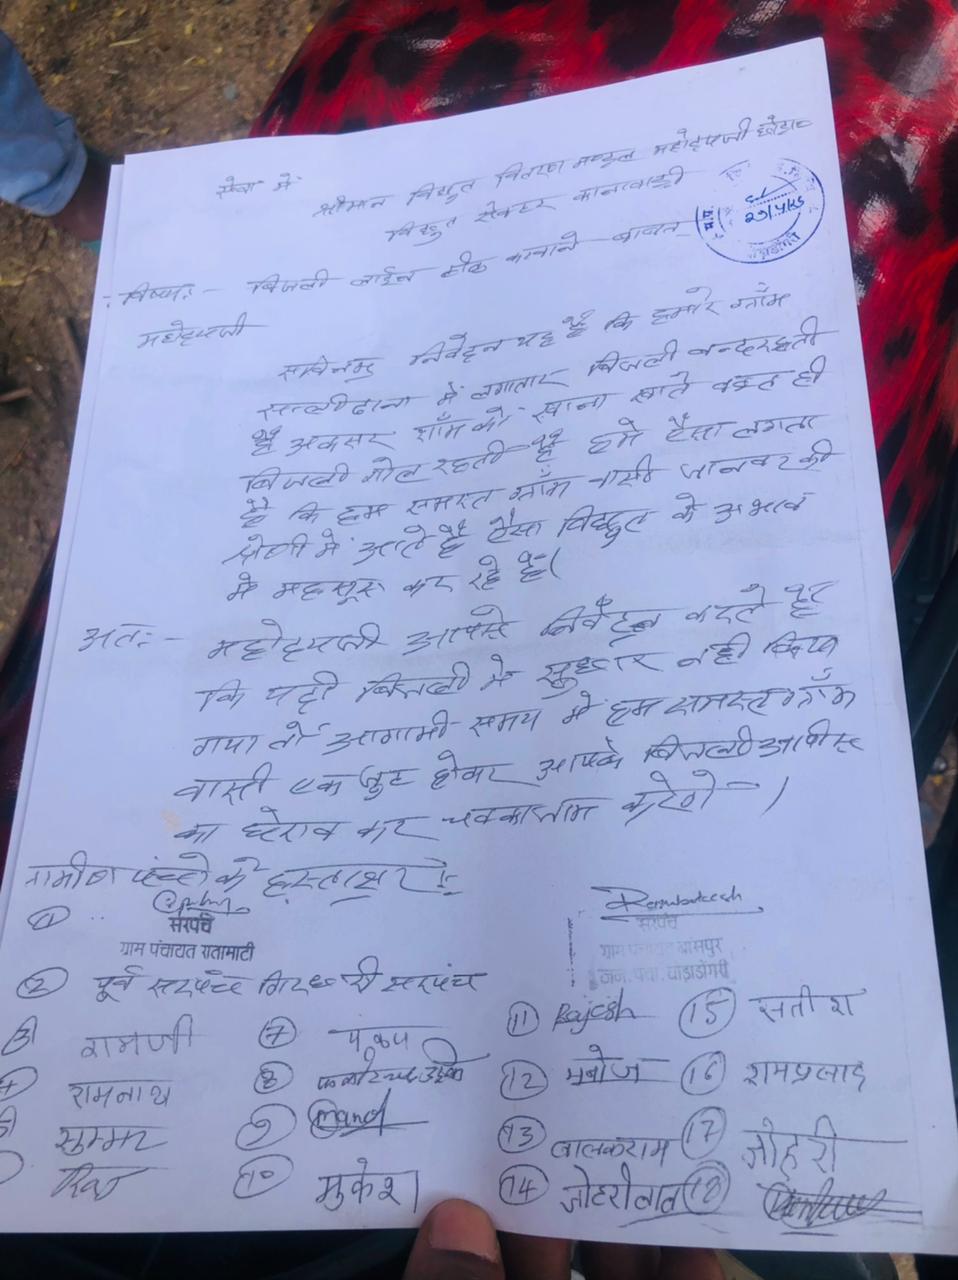 सेवा में
श्रीमान विद्युत वितरण मण्डल महोदयजी
विद्युत सेक्टर कान्हावाड़ी
विषय:- बिजली लाईन ठीक कराने बाबत
29/4/25
घोड़ाडोंगरी
महोदयजी
सविनम्र निवेदन यह है कि हमारे गाँम
में लगातार बिजली बन्द रहती
है अक्सर शाँम को खाना खाते वक्त ही
बिजली गोल रहती है हमे ऐसा लगता
है कि हम समस्त गाँम वासी जानवर की
श्रेणी में आते है ऐसा विद्युत के अभाव
मे महसूस कर रहे है।
अतः- महोदयजी आपसे निवेदन करते है
कि यदी बिजली मे सुधार नही किया
गया तो आगामी समय मे हम समस्त गाँम
वासी एक जुट होकर आपके बिजली आफीस
का घेराव कर चक्काजाम करेगे -।
ग्रामीण पंचो के हस्ताक्षर :-
①
सरपंच
ग्राम पंचायत रातामाटी
Rambakesh
सरपंच
ग्राम पंचायत बांसपुर
जन. पंचा. घोड़ाडोंगरी
② पूर्व सरपंच गिरधारी सरपंच
③ रामजी
④ रामनाथ
⑤ सुम्मर
⑦ पंकज
⑧
⑨ Manoj
⑩ मुकेश
⑪ Rajesh
⑫ मनोज
⑬ बालकराम
⑭ जोहरीलाल
⑮ सतीश
⑯ रामप्रसाद
⑰ जोहरी
⑱